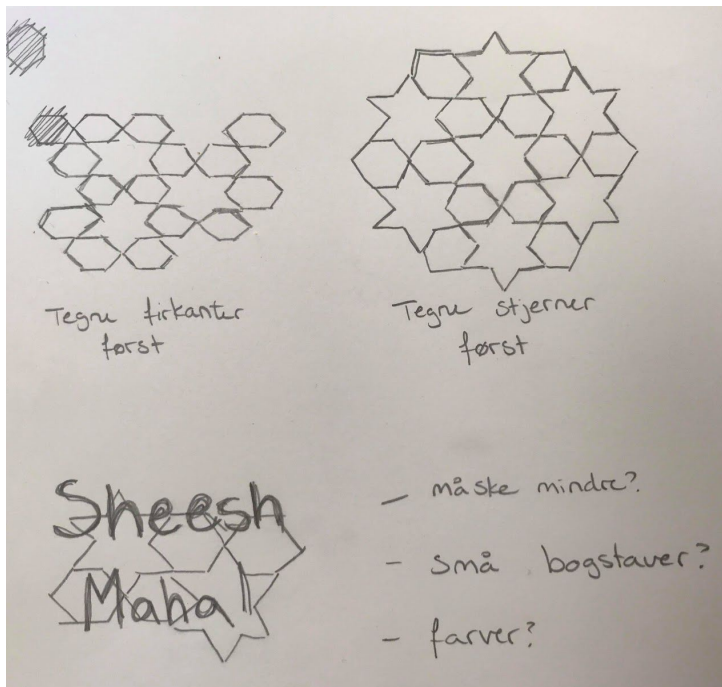 Tegne firkanter
først
Tegne stjerner
først
Sheesh
Maha
- måske mindre?
- små bogstaver?
- farver?